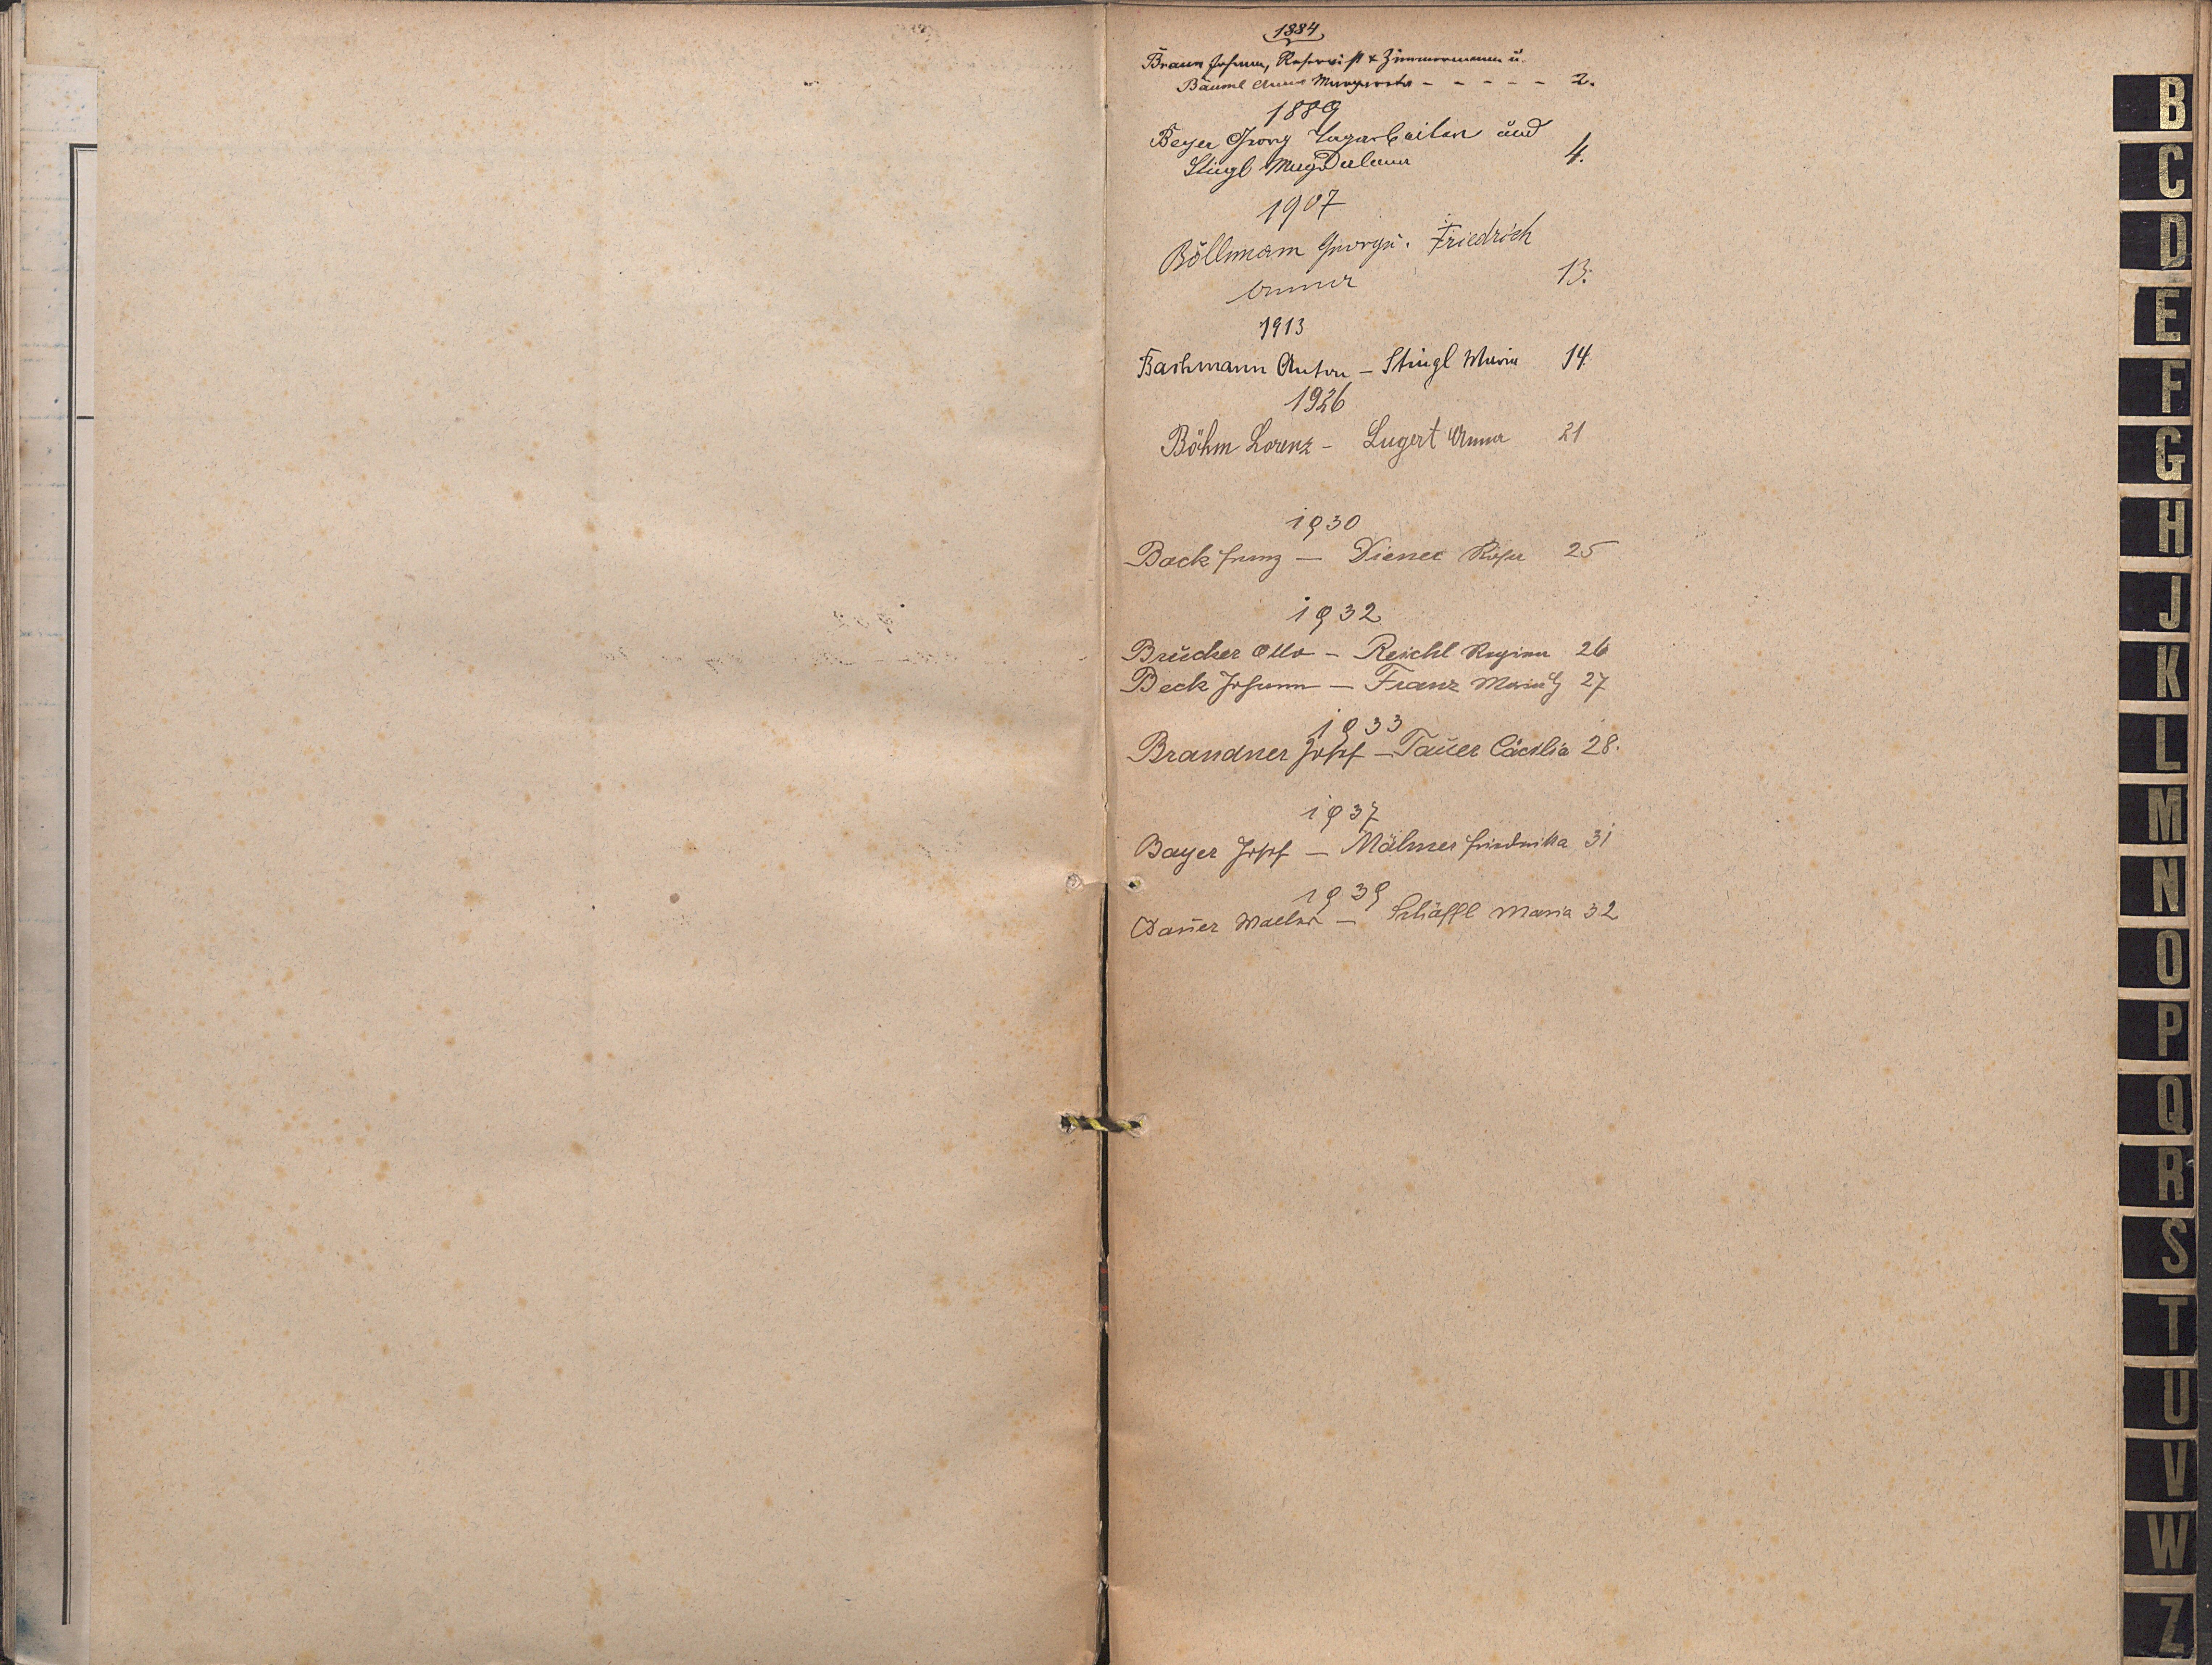 1884
Braun Johann, Reservist & Zimmermann u.
Bäuml Anna Margareta - - - - - 2.
1889
Beyer Georg Tagarbeiter und
Stingl Magdalena 4.
1907
Böllmann Georg u. Friedrich
Anna 13.
1913
Bachmann Anton - Stingl Maria 14
1926
Böhm Lorenz - Lugert Anna 21
1930
Back Franz - Diener Rosa 25
1932
Brucker Otto - Reichl Regina 26
Beck Johann - Franz 27
1933
Brandner Josef - Tauer Cäcilia 28.
1937
Bayer Josef - Mähner Friederika 31
1939
Bauer Walter - Schäffl Maria 32
B
C
D
E
F
G
H
J
K
L
M
N
O
P
Q
R
S
T
U
V
W
Z